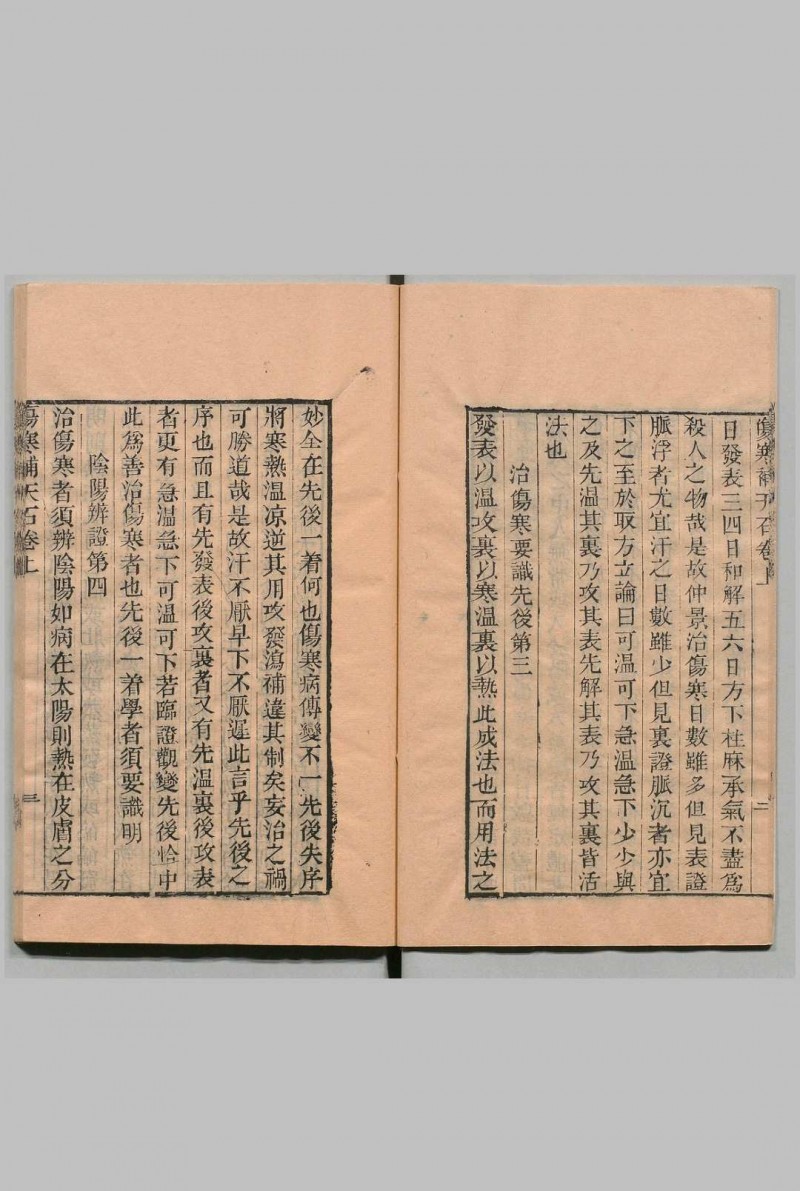 傷寒補天石卷上
二
日發表三四日和解五六日方下桂麻承氣不盡爲
殺人之物哉是故仲景治傷寒日數雖多但見表證
脈浮者尤宜汗之日數雖少但見裏證脈沉者亦宜
下之至於取方立論曰可溫可下急溫急下少少與
之及先溫其裏乃攻其表先解其表乃攻其裏皆活
法也
治傷寒要識先後第三
發表以溫攻裏以寒溫裏以熱此成法也而用法之
妙全在先後一着何也傷寒病傳變不一先後失序
將寒熱溫凉逆其用攻發瀉補違其制矣妄治之禍
可勝道哉是故汗不厭早下不厭遲此言乎先後之
序也而且有先發表後攻裏者又有先溫裏後攻表
者更有急溫急下可溫可下若臨證觀變先後恰中
此爲善治傷寒者也先後一着學者須要識明
陰陽辨證第四
治傷寒者須辨陰陽如病在太陽則熱在皮膚之分
傷寒補天石卷上
三